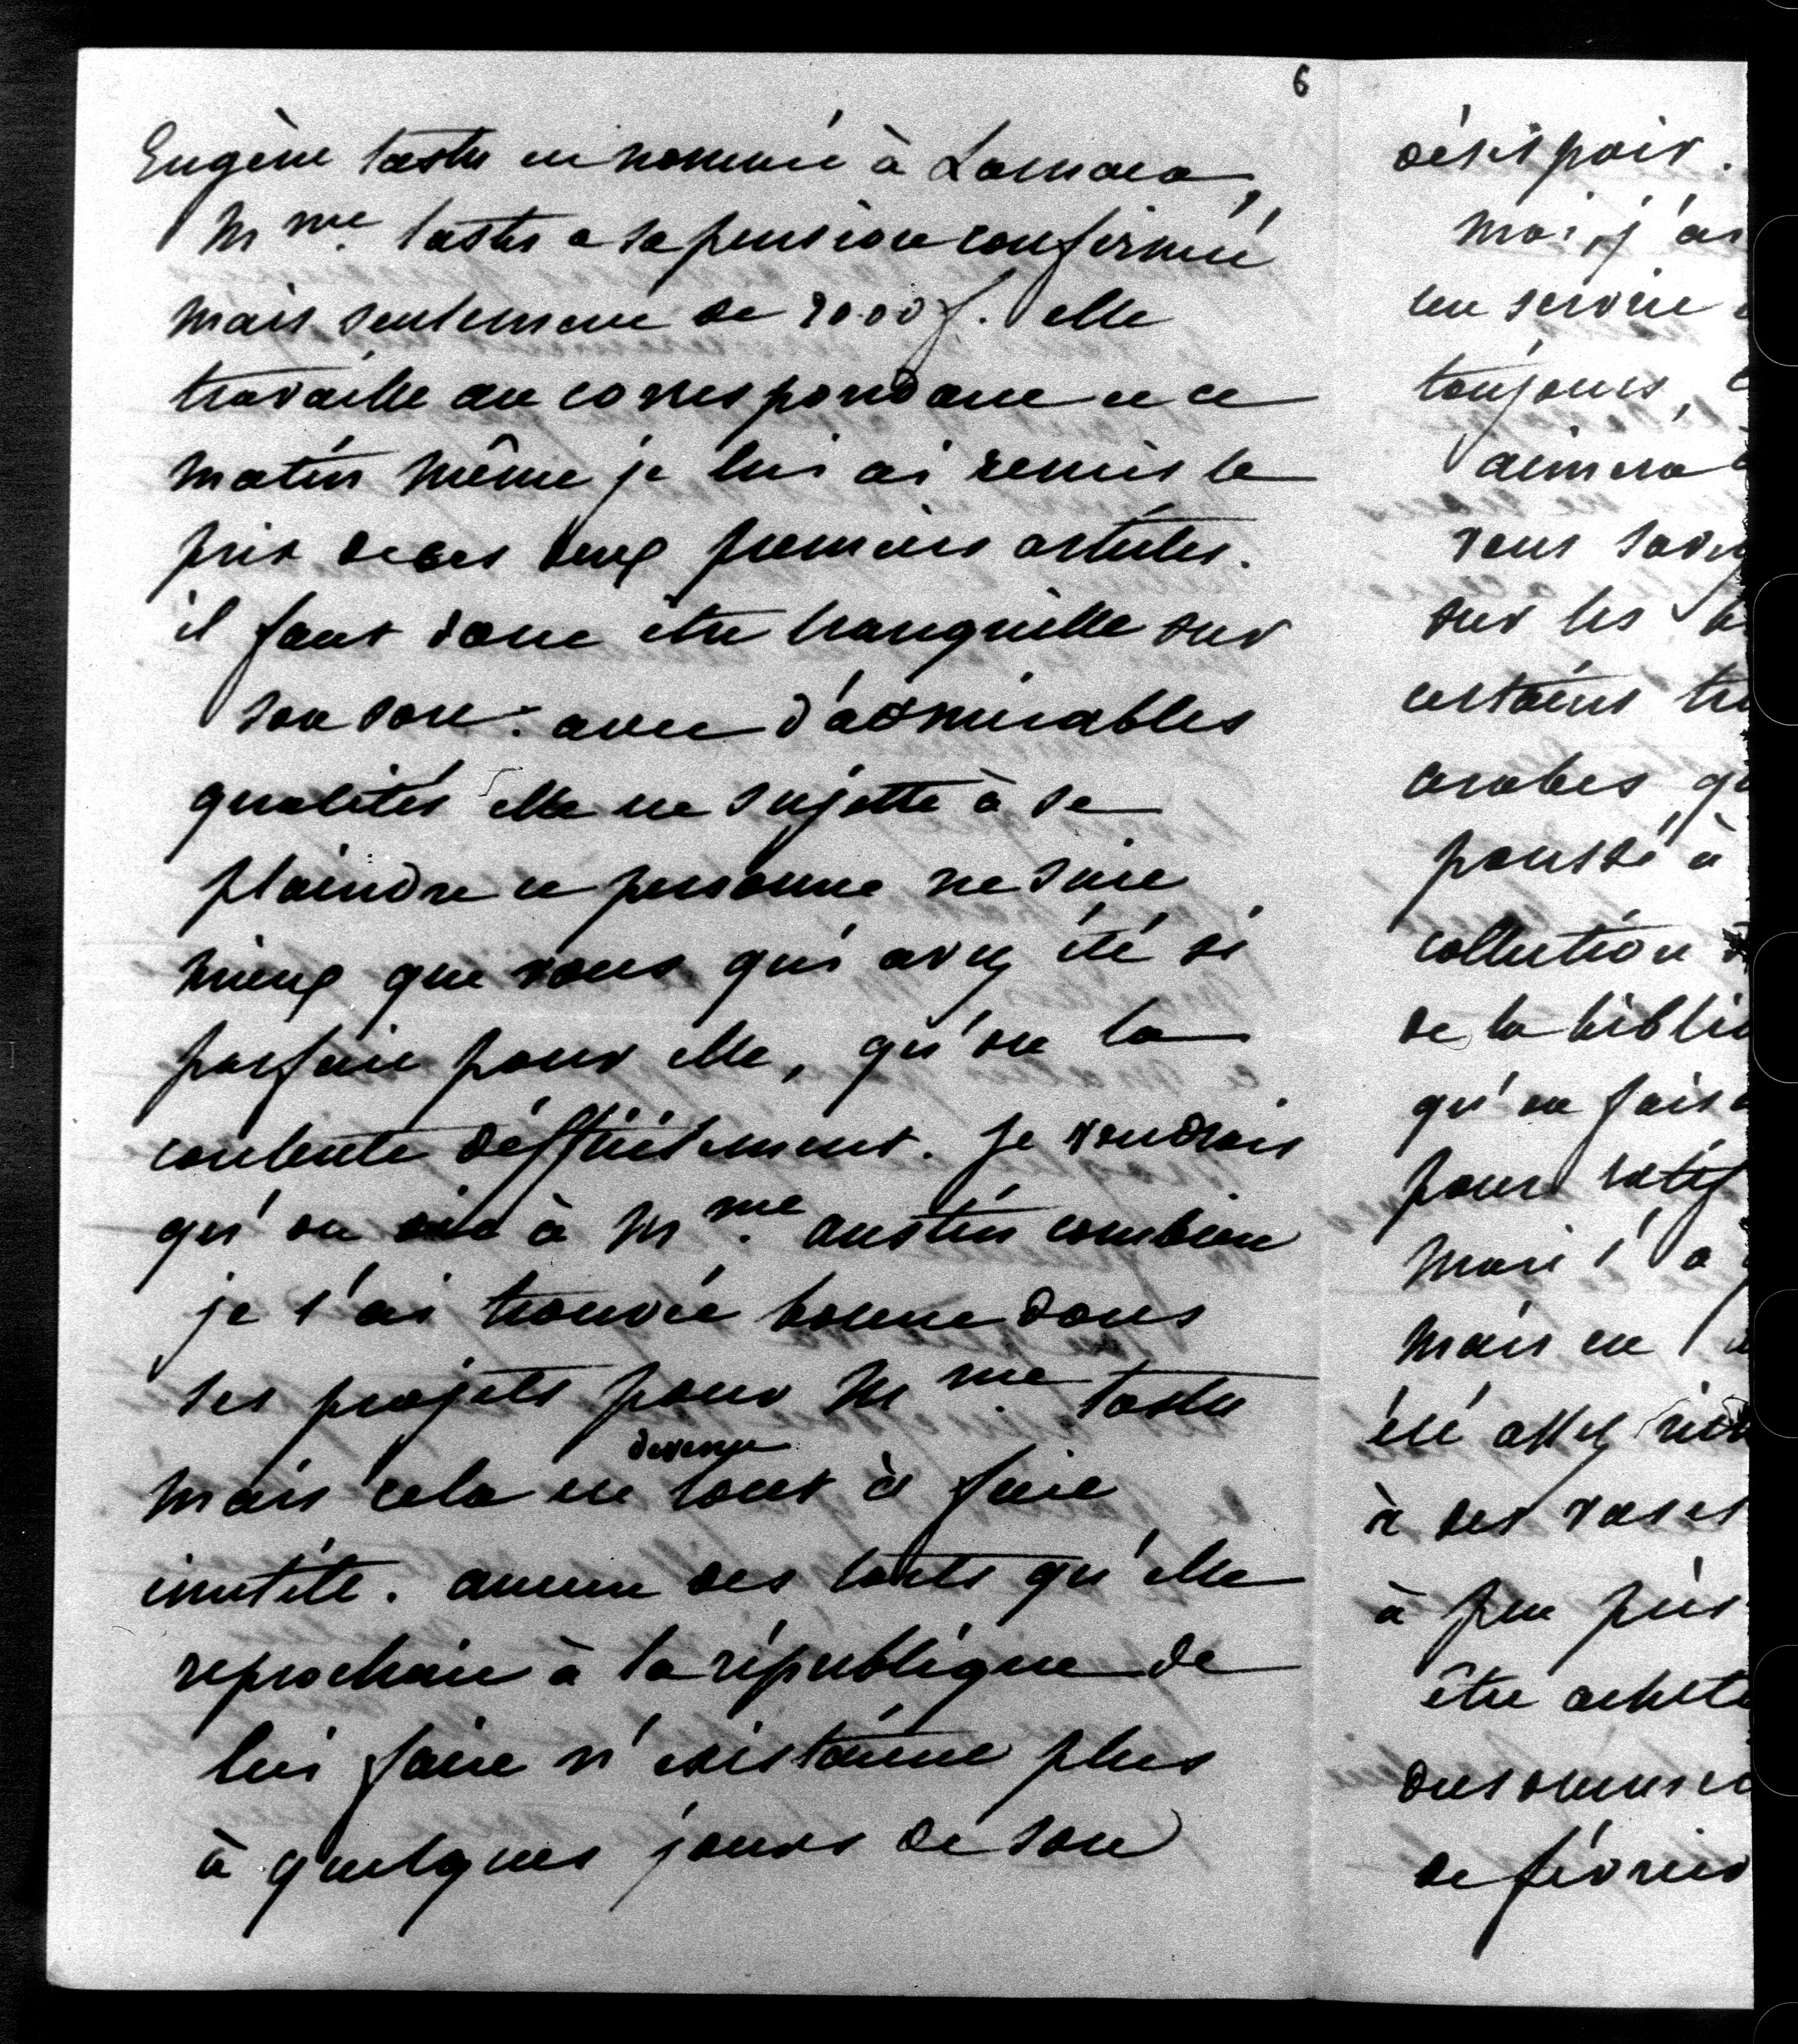 6
Eugène tastu est nommé à Larnaca,
Mme. tastu a sa pension confirmée
mais seulement de 2000 f. elle
travaille au correspondant et ce
matin même je lui ai remis le
prix de ses deux premiers articles.
il faut donc être tranquille sur
son sort. avec d'admirables
qualités elle est sujette à se
plaindre et personne ne sait
mieux que vous qui avez été si
parfait pour elle, qu'on la
contente difficilement. je voudrais
qu'on dit à Mme. austin combien
je l'ai trouvée bonne dans
ses projets pour Mme. tastu
devenu
mais cela est tout à fait
inutile. aucun des torts qu'elle
reprochait à la république de
lui faire n'existaient plus
à quelques jours de son
désespoir.
moi, j'ai
toujours,
aimera
vous savez
sur les
certains
arabes
poussé à
collection
de la biblio
qu'on fais
pour
mais l'a
mais en
été assez
à ses vases
à peu près
être acheté
de février